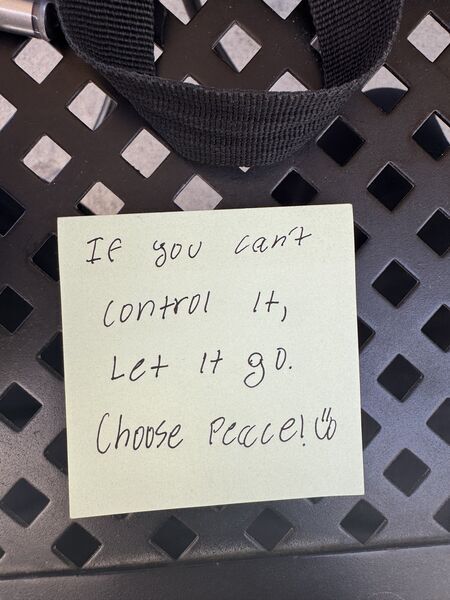 If you can't
control It,
Let It go.
Choose Peace! :)